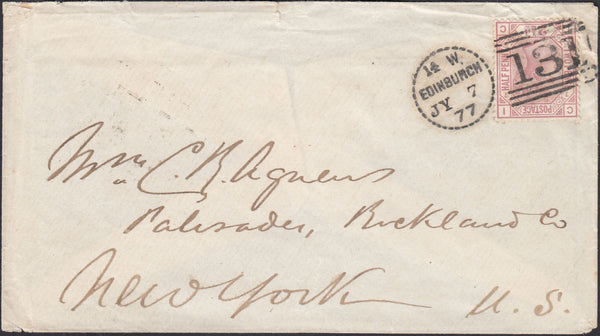 14 W.
EDINBURGH
JY 7
77
131
HALF PEN
POSTAGE
C I
I C
Mrs C. R. Agnew
Palisades, Rockland Co
New York U.S.